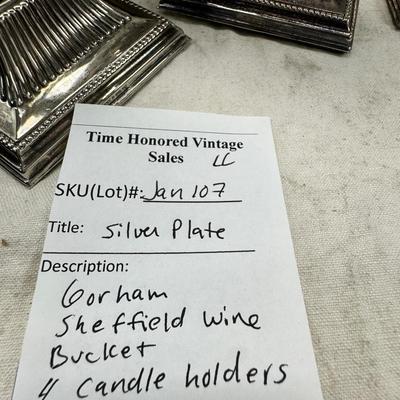 Time Honored Vintage
Sales LC
SKU(Lot)#: Jan 107
Title: Silver Plate
Description:
Gorham
Sheffield Wine
Bucket
4 Candle holders